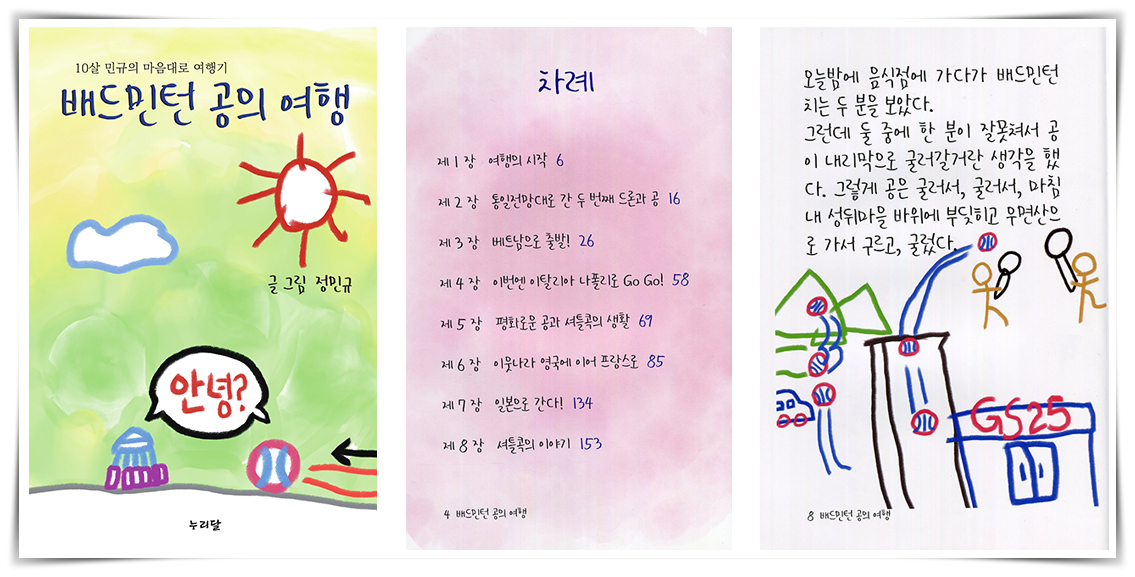 10살 민규의 마음대로 여행기
배드민턴 공의 여행
글 그림 정민규
안녕?
누리달
차례
제 1 장 여행의 시작 6
제 2 장 통일전망대로 간 두 번째 드론과 공 16
제 3 장 베트남으로 출발! 26
제 4 장 이번엔 이탈리아 나폴리로 Go Go! 58
제 5 장 평화로운 공과 셔틀콕의 생활 69
제 6 장 이웃나라 영국에 이어 프랑스로 85
제 7 장 일본으로 간다! 134
제 8 장 셔틀콕의 이야기 153
4 배드민턴 공의 여행
오늘밤에 음식점에 가다가 배드민턴
치는 두 분을 보았다.
그런데 둘 중에 한 분이 잘못쳐서 공
이 내리막으로 굴러갈거란 생각을 했
다. 그렇게 공은 굴러서, 굴러서, 마침
내 성뒤마을 바위에 부딪히고 우면산으
로 가서 구르고, 굴렀다.
GS25
8 배드민턴 공의 여행